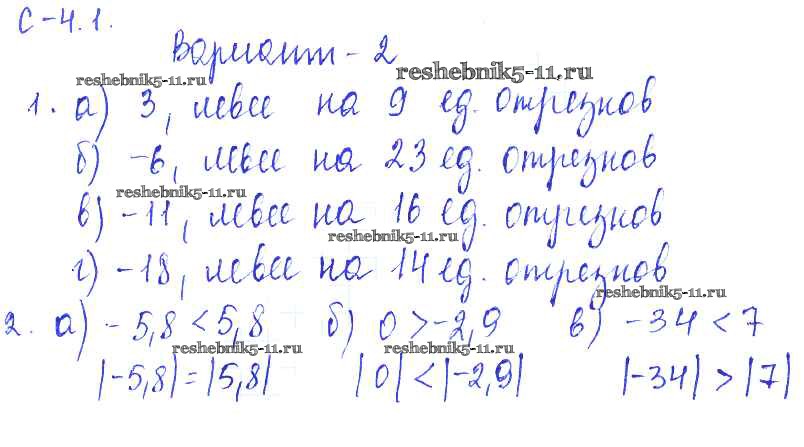 С-4.1.
Вариант-2
reshebnik5-11.ru reshebnik5-11.ru
1. а) 3, левее на 9 ед. отрезков
б) -6, левее на 23 ед. отрезков
reshebnik5-11.ru
в) -11, левее на 16 ед. отрезков
reshebnik5-11.ru
г) -18, левее на 14 ед. отрезков
reshebnik5-11.ru
2. а) -5,8 < 5,8 б) 0 > -2,9 в) -34 < 7
reshebnik5-11.ru reshebnik5-11.ru
|-5,8| = |5,8| |0| < |-2,9| |-34| > |7|